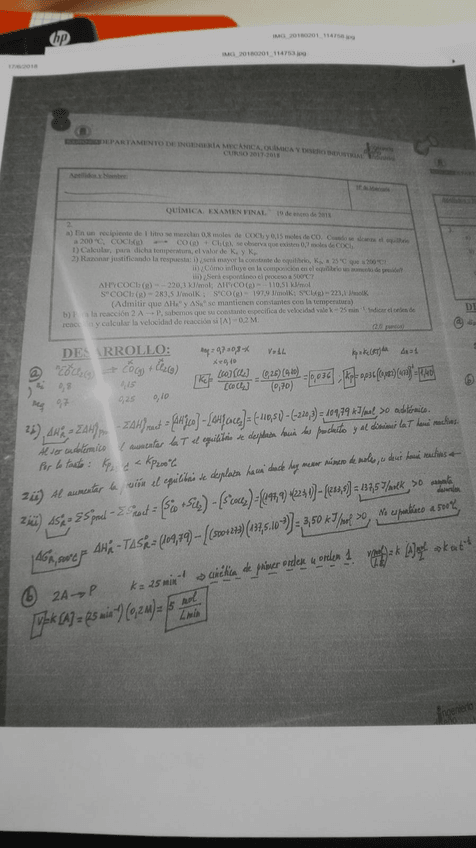 hp
IMG_20180201_114758.jpg
IMG_20180201_114753.jpg
17/6/2018
DEPARTAMENTO DE INGENIERÍA MECÁNICA, QUÍMICA Y DISEÑO INDUSTRIAL
CURSO 2017-2018
Apellidos y Nombre:
QUÍMICA. EXAMEN FINAL 19 de enero de 2018
2.
a) En un recipiente de 1 litro se mezclan 0,8 moles de COCl₂ y 0,15 moles de CO. Cuando se alcanza el equilibrio
a 200 ºC, COCl₂(g) ⟷ CO(g) + Cl₂(g), se observa que existen 0,7 moles de COCl₂
1) Calcular, para dicha temperatura, el valor de Kc y Kp
2) Razonar justificando la respuesta: i) ¿será mayor la constante de equilibrio, Kp, a 25 ºC que a 200ºC?
ii) ¿Cómo influye en la composición en el equilibrio un aumento de presión?
iii) ¿Será espontáneo el proceso a 500ºC?
ΔHºf COCl₂(g) = −220,3 kJ/mol; ΔHºf CO(g) = −110,51 kJ/mol
Sº COCl₂(g) = 283,5 J/molK; Sº CO(g) = 197,9 J/molK; Sº Cl₂(g) = 223,1 J/molK
(Admitir que ΔHRº y ΔSRº se mantienen constantes con la temperatura)
b) Para la reacción 2 A → P, sabemos que su constante específica de velocidad vale k = 25 min⁻¹. Indicar el orden de
reacción y calcular la velocidad de reacción si [A] = 0,2 M.
(2,0 puntos)
DESARROLLO:
neq = 0,7 = 0,8-x V=1L Kp = Kc(RT)^Δn Δn=1
x = 0,10
a) COCl₂(g) ⇌ CO(g) + Cl₂(g)
ni 0,8 0,15
neq 0,7 0,25 0,10
Kc = [CO][Cl₂]/[COCl₂] = (0,25)(0,10)/(0,70) = 0,036
2i) ΔHºR = ΣΔHºf prod − ΣΔHºf react = [ΔHºf CO] − [ΔHºf COCl₂] = (−110,51) − (−220,3) = 109,79 kJ/mol >0 endotérmico.
Al ser endotérmico al aumentar la T el equilibrio se desplaza hacia los productos y al disminuir la T hacia reactivos.
Por lo tanto: Kp 25ºC < Kp 200ºC
2ii) Al aumentar la presión el equilibrio se desplaza hacia donde hay menor número de moles, es decir hacia reactivos ←
2iii) ΔSºR = ΣSºprod − ΣSºreact = [SºCO + SºCl₂] − [SºCOCl₂] = [(197,9)+(223,1)] − [(283,5)] = 137,5 J/molK >0 aumenta
desorden
ΔGºR,500ºC = ΔHºR − TΔSºR = (109,79) − [(500+273)(137,5.10⁻³)] = 3,50 kJ/mol >0 No espontáneo a 500ºC
b) 2A → P k = 25 min⁻¹ ⇒ cinética de primer orden u orden 1.
V = k[A] = (25 min⁻¹)(0,2M) = 5 mol/L min